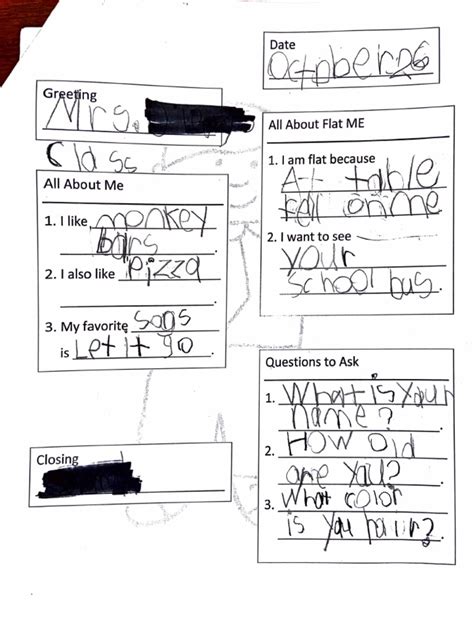 Date
October 26
Greeting
Mrs.
Class
All About Me
1. I like monkey
bars.
2. I also like pizza
.
3. My favorite sogs
is Let It go.
Closing
All About Flat ME
1. I am flat because
A t table
fell on me
2. I want to see
your
school bus.
Questions to Ask
1. What is your
name?
2. How old
are you?
3. What color
is you hair?